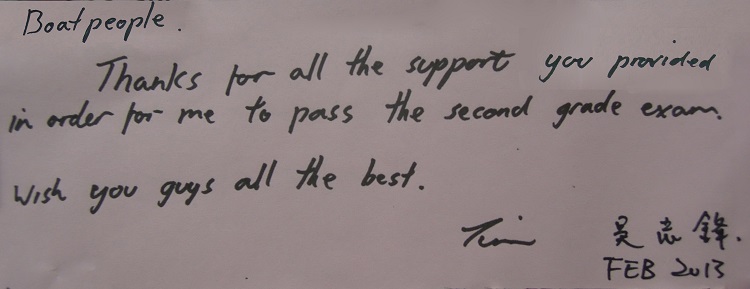 Boatpeople.
Thanks for all the support you provided
in order for me to pass the second grade exam.
Wish you guys all the best.
Tim 吴志鋒.
FEB 2013